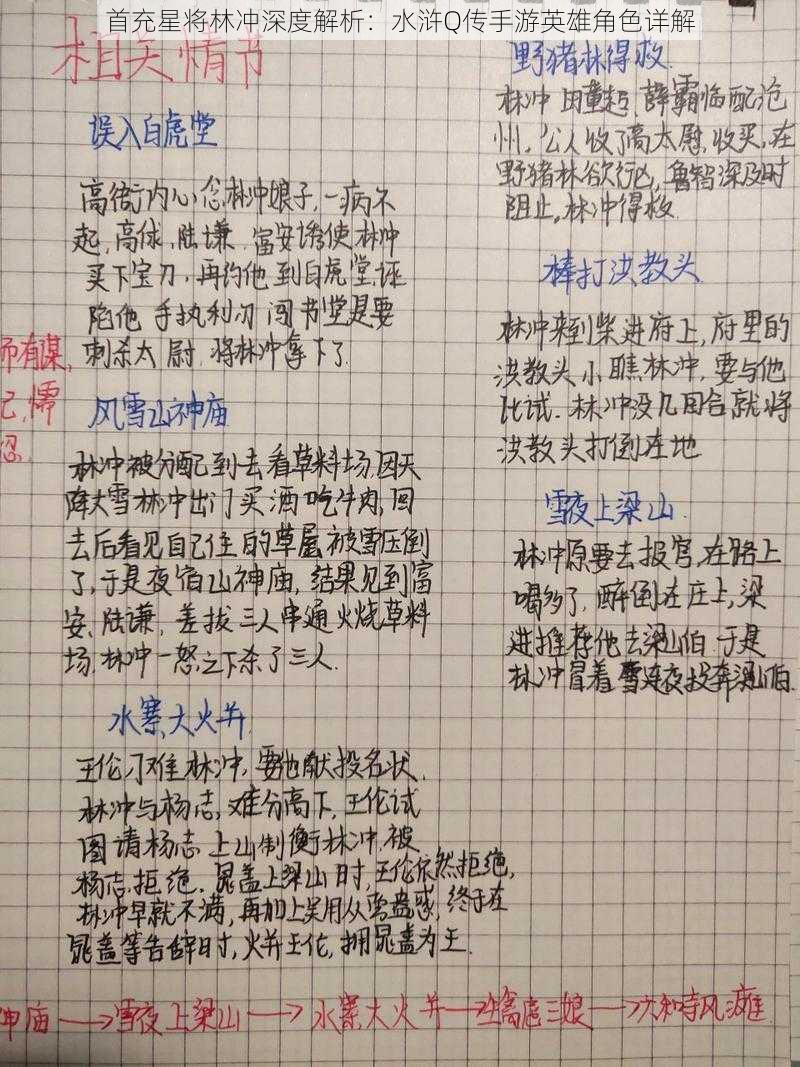 首充星将林冲深度解析：水浒Q传手游英雄角色详解
相关情节
误入白虎堂
高衙内心念林冲娘子，一病不
起，高俅，陆谦，富安诱使林冲
买下宝刀，再约他到白虎堂，诬
陷他手执利刃闯书堂是要
刺杀太尉，将林冲拿下了
有谋，
风雪山神庙
林冲被分配到去看草料场，因天
降大雪林冲出门买酒吃牛肉，回
去后看见自己住的草屋被雪压倒
了，于是夜宿山神庙，结果见到富
安、陆谦，差拔三人串通火烧草料
场，林冲一怒之下杀了三人.
水寨大火并
王伦刁难林冲，要他献投名状，
林冲与杨志，难分高下，王伦试
图请杨志上山制衡林冲，被
杨志拒绝。晁盖上梁山时，王伦依然拒绝，
林冲早就不满，再加上吴用从旁蛊惑，终于在
晁盖等告辞时，火并王伦，拥晁盖为王.
野猪林得救
林冲因董超，薛霸临配沧
州，公人收了高太尉收买，在
野猪林欲行凶，鲁智深及时
阻止，林冲得救
棒打洪教头
林冲来到柴进府上，府里的
洪教头小瞧林冲，要与他
比试.林冲没几回合就将
洪教头打倒在地
雪夜上梁山
林冲原要去报官，在路上
喝多了，醉倒在庄上，梁
进推荐他去梁山伯 于是
林冲冒着雪连夜投奔梁山伯.
神庙→雪夜上梁山→水寨大火并→生擒扈三娘→六和寺风瘫